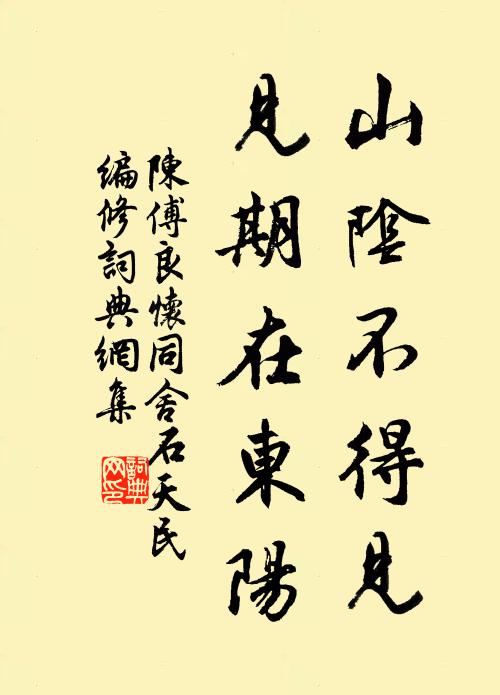 山陰不得見
見期在東陽
陳傅良懷同舍石天民
編修詞典網集
詞典網印